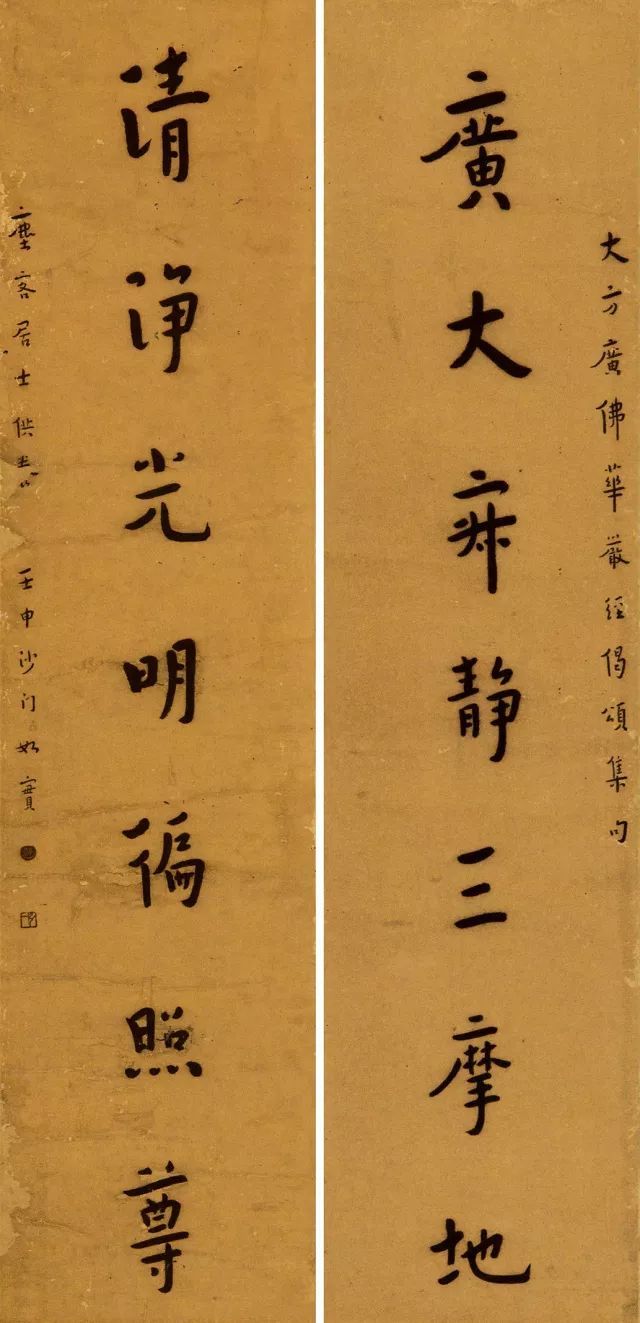 大方廣佛華嚴經偈頌集句
廣大寂靜三摩地
清淨光明徧照尊
塵客居士供養
壬申沙门如實